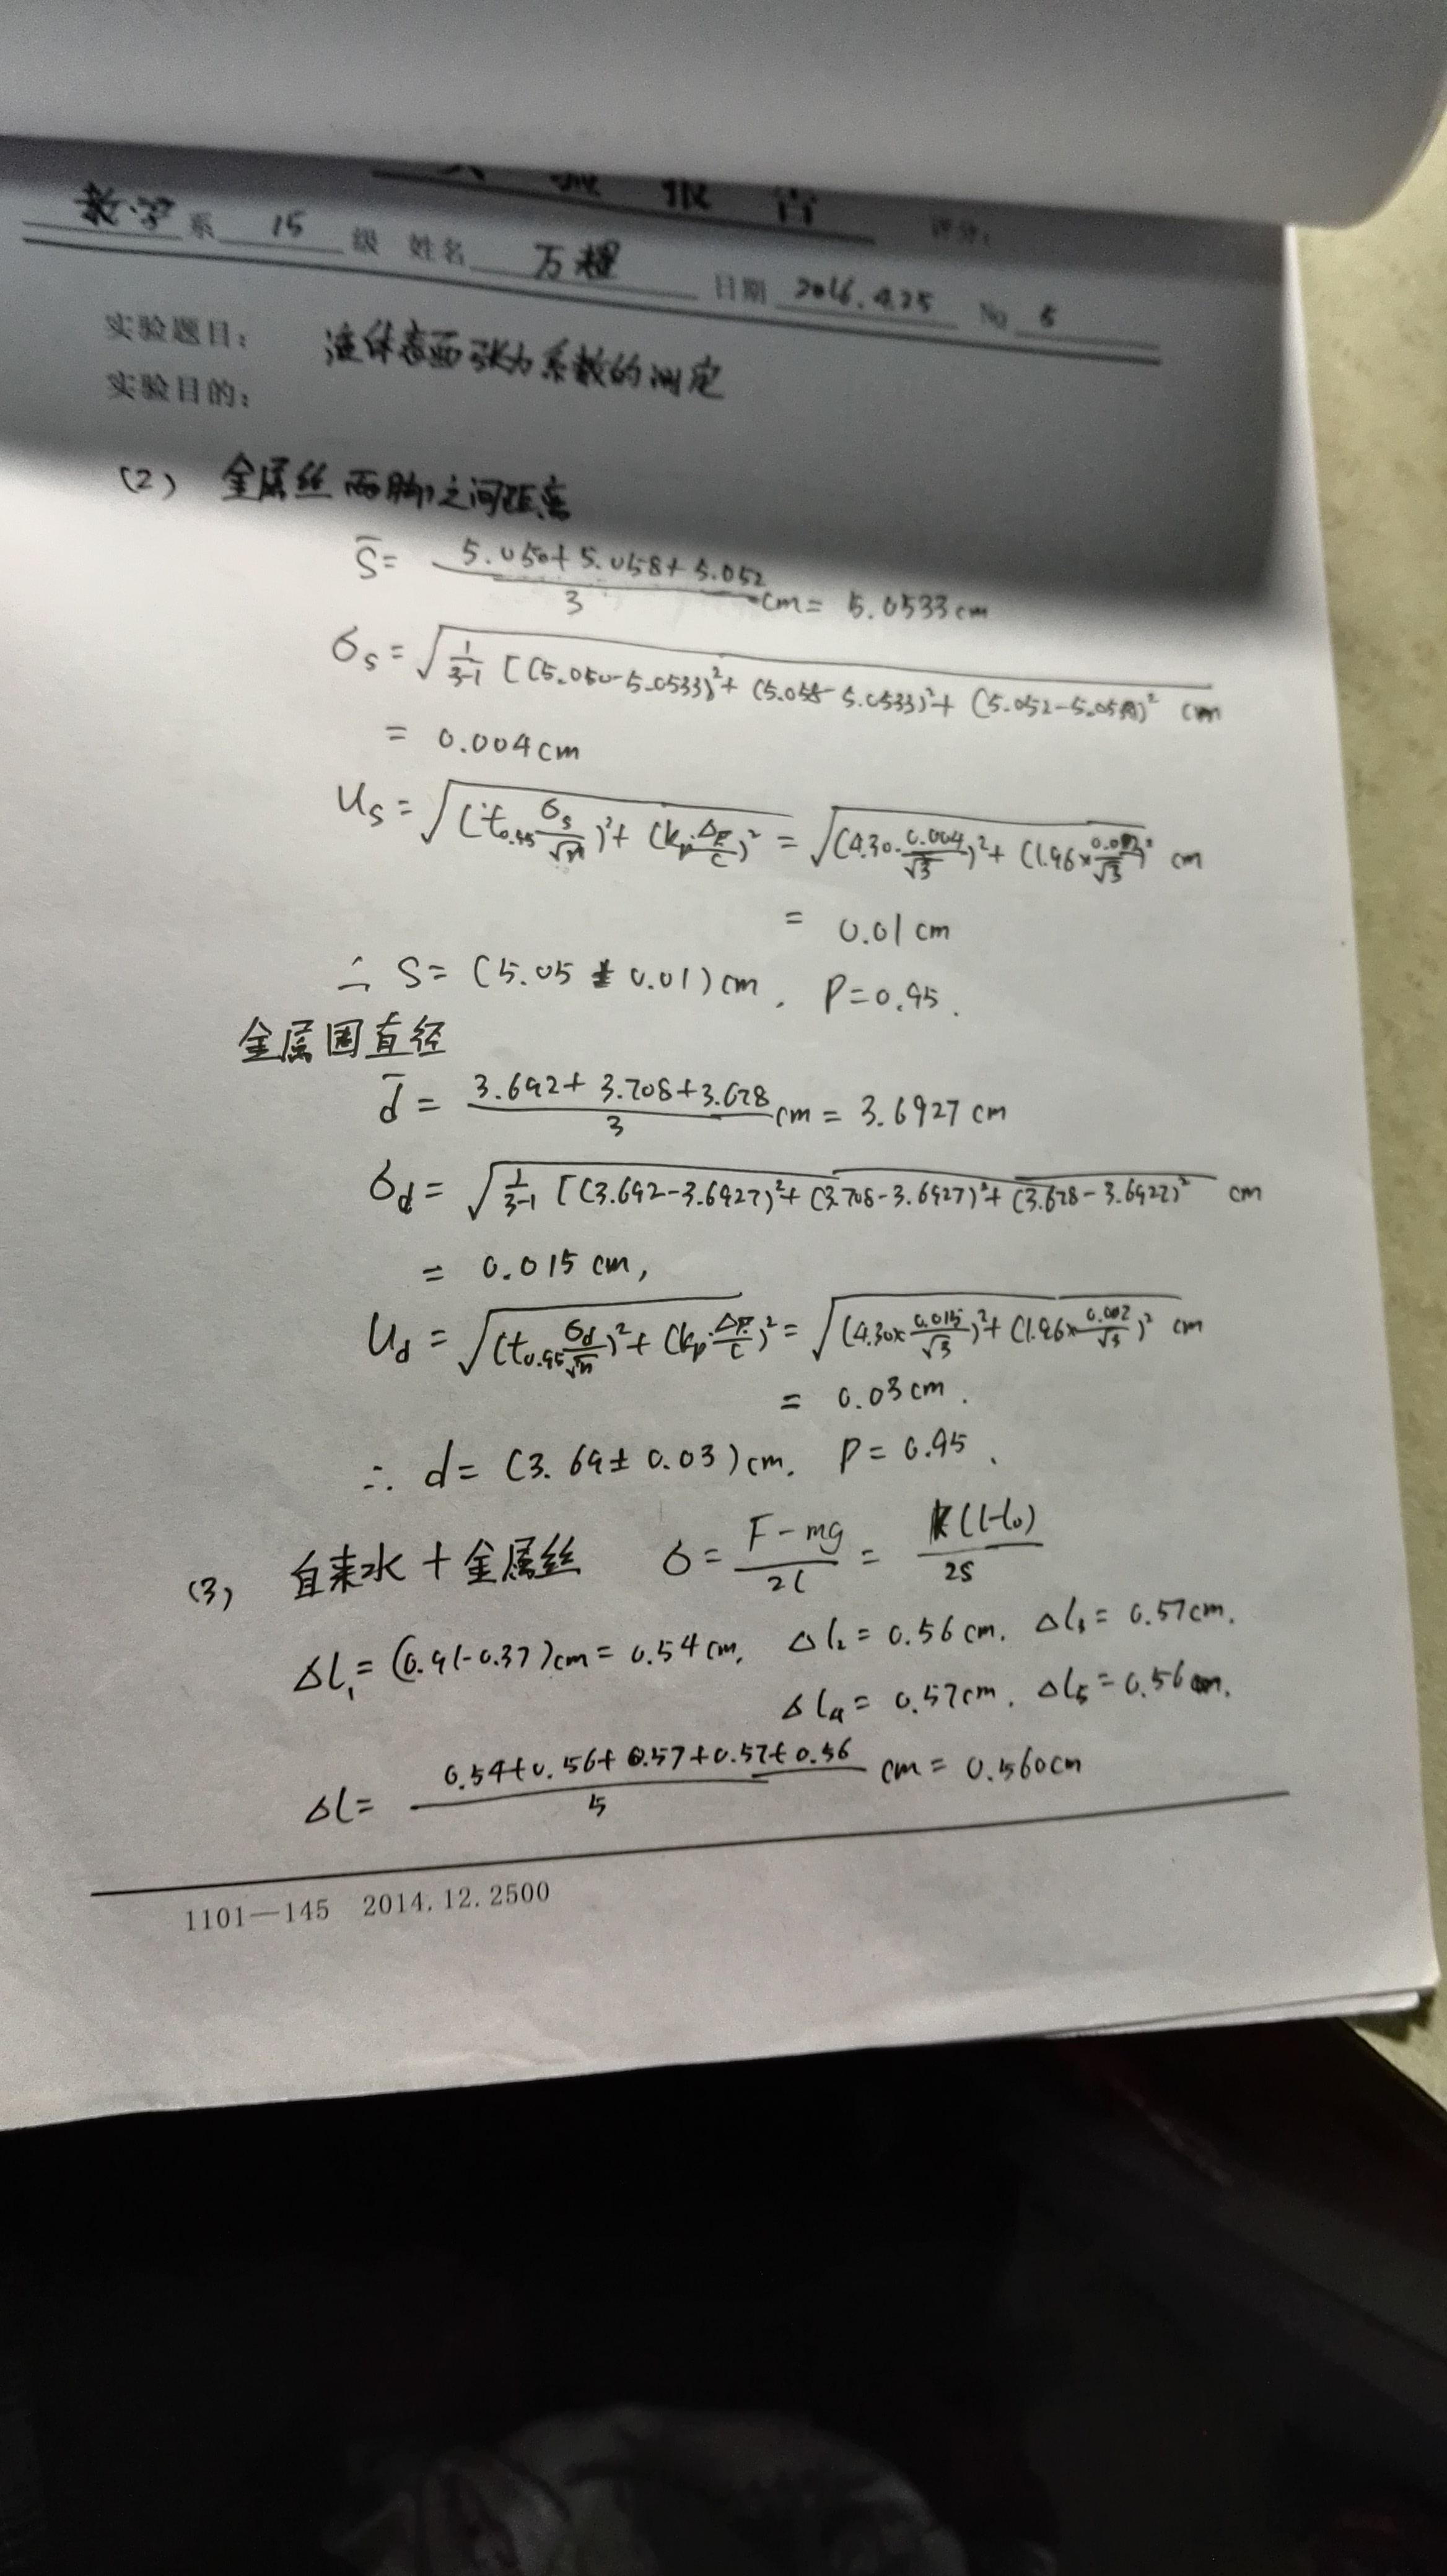 实验报告 评分:
数学系 15 级 姓名 万 日期 2016.4.25 No 5
实验题目: 液体表面张力系数的测定
实验目的:
(2) 金属丝两脚之间距离
S̄ = (5.050+5.058+5.052)/3 cm = 5.0533cm
σs = √(1/(3-1) [(5.050-5.0533)²+(5.058-5.0533)²+(5.052-5.0533)² cm
= 0.004cm
Us = √((t0.95 σs/√n)²+(kp ΔB/C)² = √((4.30·0.004/√3)²+(1.96×0.002/√3)² cm
= 0.01cm
∴ S=(5.05±0.01)cm, P=0.95.
金属圈直径
d̄ = (3.692+3.708+3.678)/3 cm = 3.6927cm
σd = √(1/(3-1) [(3.692-3.6927)²+(3.708-3.6927)²+(3.678-3.6927)² cm
= 0.015cm,
Ud = √((t0.95 σd/√n)²+(kp·ΔB/C)² = √((4.30×0.015/√3)²+(1.96×0.002/√3)² cm
= 0.03cm.
∴ d=(3.69±0.03)cm, P=0.95.
(3) 自来水+金属丝 σ = (F-mg)/2l = K(l-l₀)/2s
Δl₁=(0.91-0.37)cm=0.54cm, Δl₂=0.56cm, Δl₃=0.57cm.
Δl₄=0.57cm, Δl₅=0.56cm.
Δl = (0.54+0.56+0.57+0.57+0.56)/5 cm = 0.560cm
1101—145 2014.12.2500